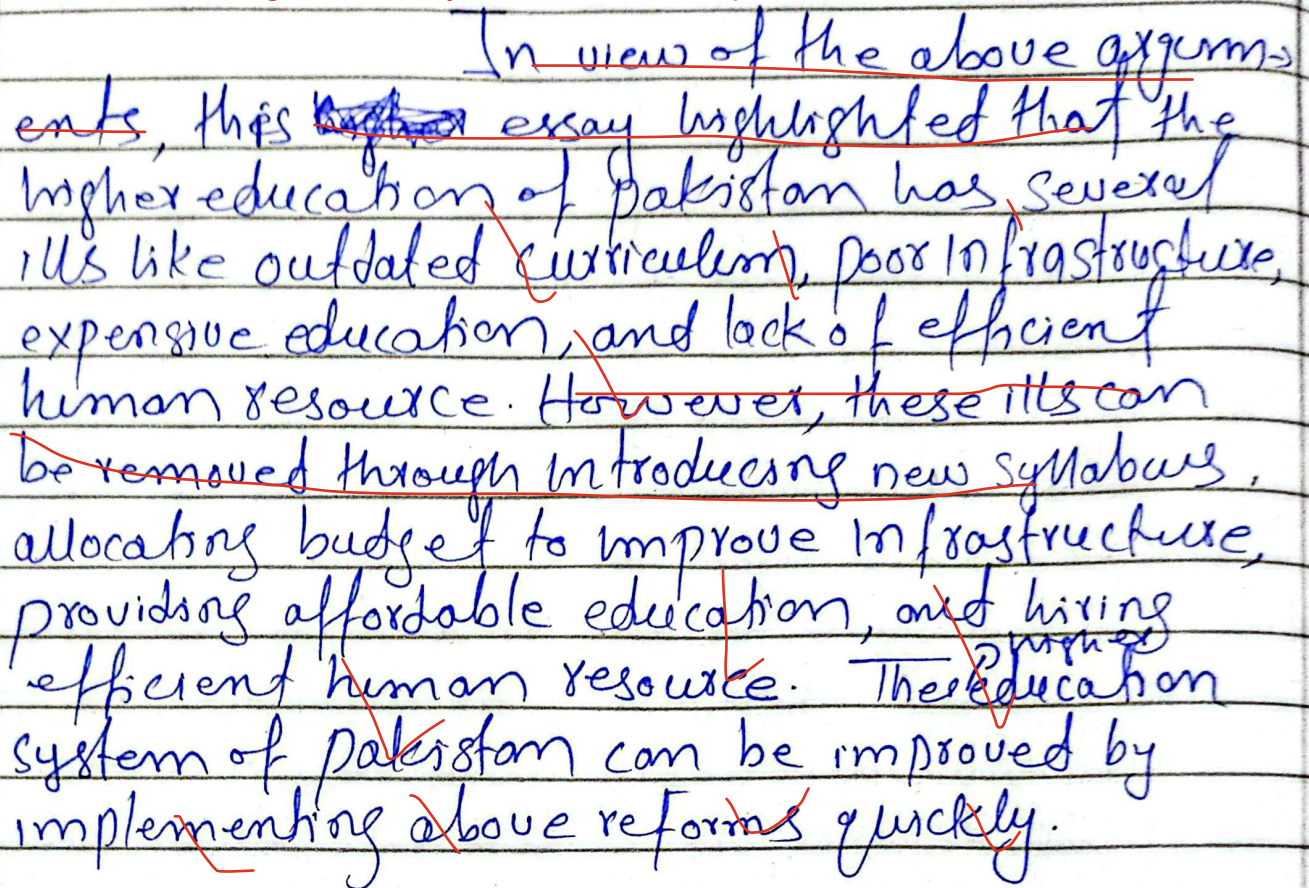 In view of the above argum-
ents, this essay highlighted that the
higher education of Pakistan has several
ills like outdated curriculum, poor Infrastructure,
expensive education, and lack of efficient
human resource. However, these ills can
be removed through introducing new syllabus,
allocating budget to improve Infrastructure,
providing affordable education, and hiring
efficient human resource. The higher education
system of Pakistan can be improved by
implementing above reforms quickly.